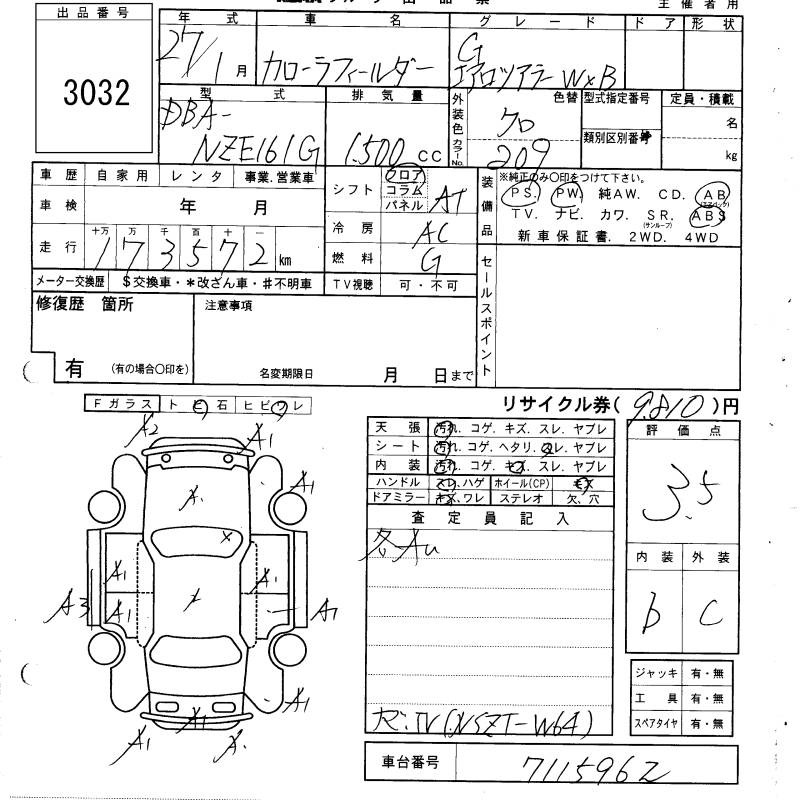 主催者用
出品番号
3032
年式 車名 グレード ドア 形状
27/1月 カローラフィールダー G エアロツアラーW×B
型式 排気量 外装色 カラーNo. 色替 型式指定番号 定員・積載
DBA-
NZE161G 1.500cc クロ 209 類別区別番号 名
kg
車歴 自家用 レンタ 事業.営業車
車検 年 月
走行 十万 万 千 百 十 一
173572km
メーター交換歴 $交換車・*改ざん車・#不明車
シフト フロア コラム パネル AT
冷房 AC
燃料 G
TV視聴 可・不可
装備品 ※純正のみ〇印をつけて下さい。
PS. PW. 純AW. CD. AB(エアバック)
TV. ナビ. カワ. SR.(サンルーフ) ABS
新車保証書. 2WD. 4WD
セールスポイント
修復歴 箇所 注意事項
有 (有の場合〇印を) 名変期限日 月 日まで
リサイクル券(9.810)円
Fガラス トビ石 ヒビワレ
A2 A1
A1 A. A1
×
A1 A1
A3 A1 A1
A1 A1
A1 A.
天張 汚れ. コゲ. キズ. スレ. ヤブレ
シート 汚れ. コゲ. ヘタリ. スレ. ヤブレ
内装 汚れ. コゲ. キズ. スレ. ヤブレ
ハンドル スレ.ハゲ ホイール(CP) キズ
ドアミラー キズ.ワレ ステレオ 欠、穴
査定員記入
各AU
ナビ.TV(NSZT-W64)
評価点
3.5
内装 外装
b C
ジャッキ 有・無
工具 有・無
スペアタイヤ 有・無
車台番号 7115962